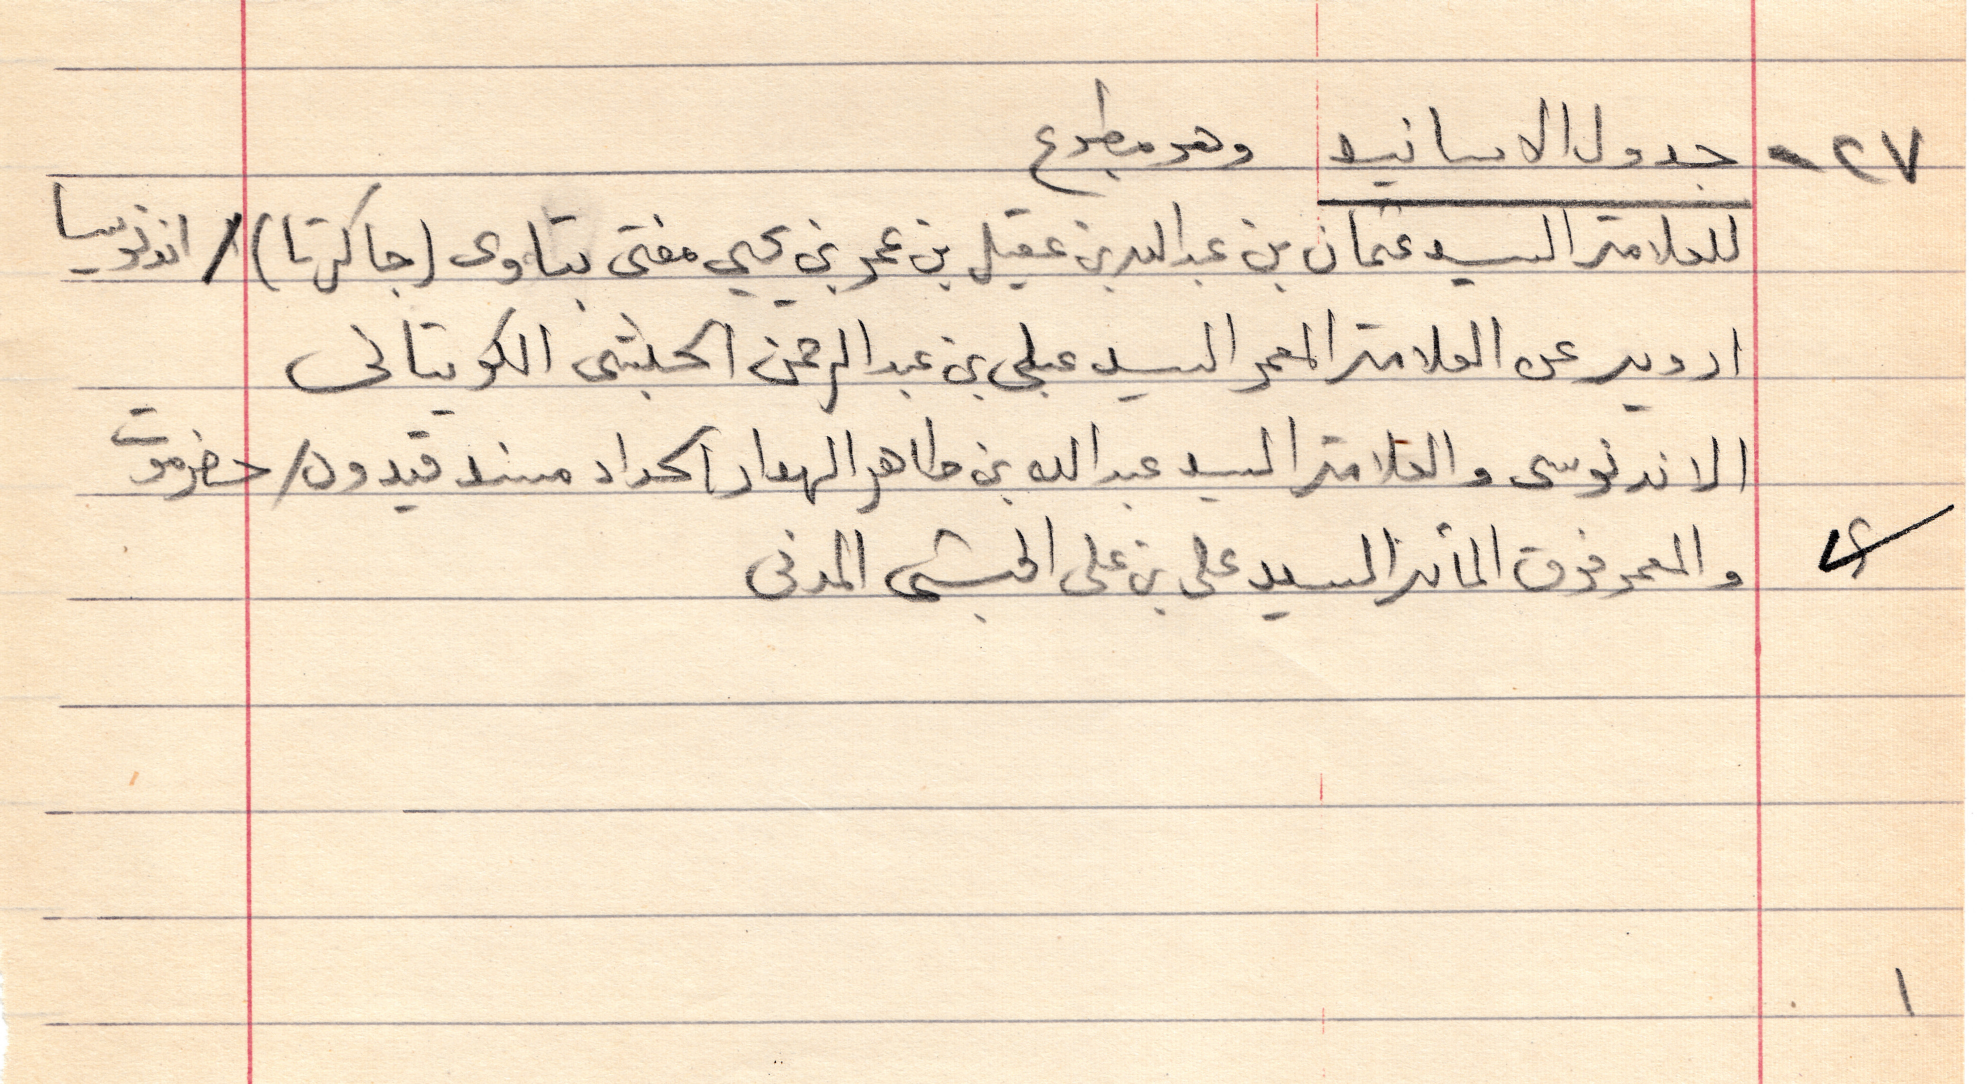 ٢٧ - جدول الاسانيد وهو مطبوع
للعلامة السيد عثمان بن عبدالله بن عقيل بن عمر بن يحيى مفتى بتاوى (جاكرتا) / اندنوسيا
ارويه عن العلامة المعمر السيد علي بن عبدالرحمن الحبشى الكويتانى
الاندنوسى والعلامة السيد عبدالله بن طاهر الهدار الحداد مسند قيدون / حضرموت
والمعمر فوق المائة السيد على بن على الحبشى المدنى
١